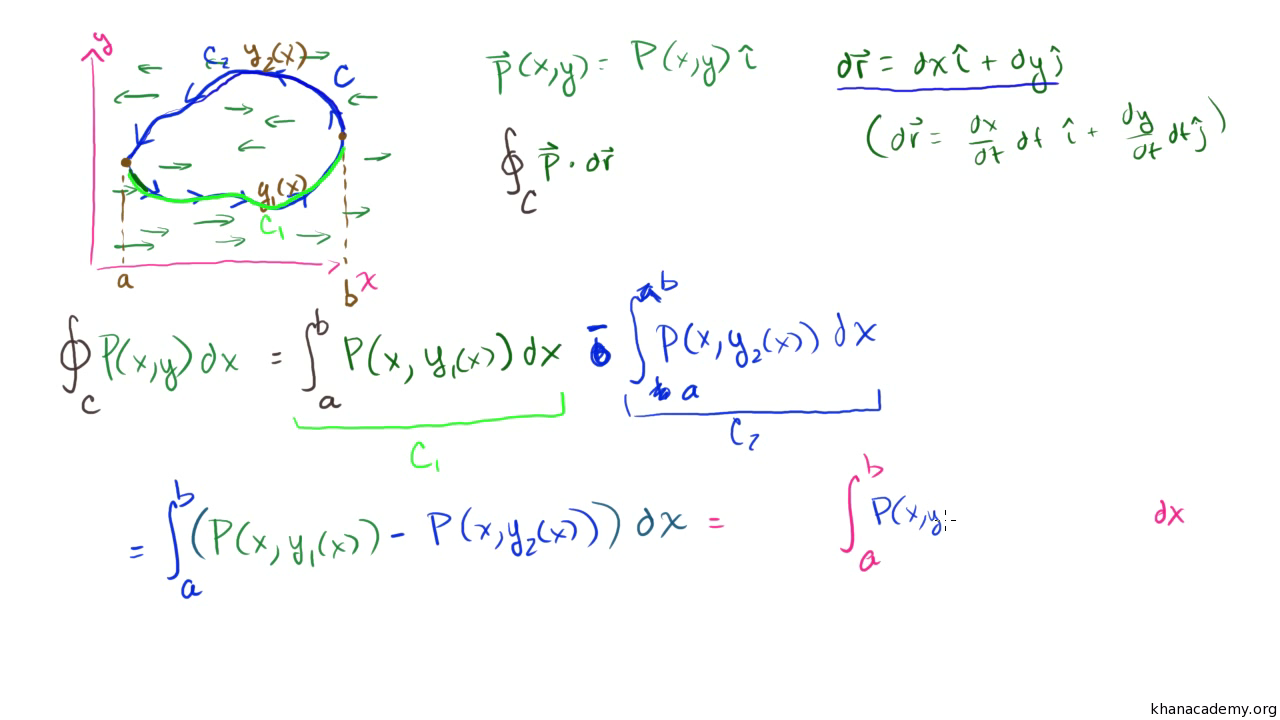 y
c₂ y₂(x)
C
y₁(x)
C₁
a
b x
P⃗(x,y) = P(x,y) î
dr⃗ = dx î + dy ĵ
(dr⃗ = dx/dt dt î + dy/dt dt ĵ)
∮_C P⃗ · dr⃗
∮_C P(x,y) dx = ∫_a^b P(x, y₁(x)) dx - ∫_a^b P(x, y₂(x)) dx
C₁
C₂
= ∫_a^b (P(x, y₁(x)) - P(x, y₂(x))) dx = ∫_a^b P(x,y dx
khanacademy.org